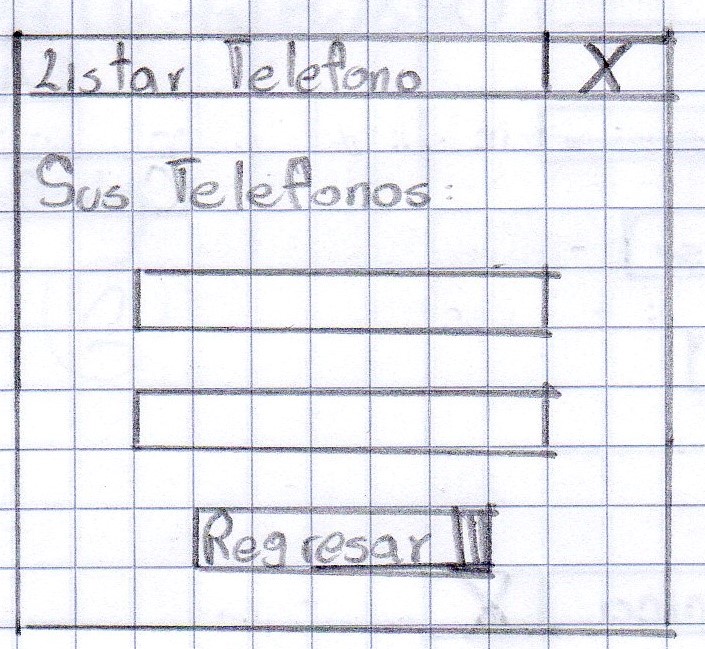 Listar Telefono X
Sus Telefonos:
Regresar